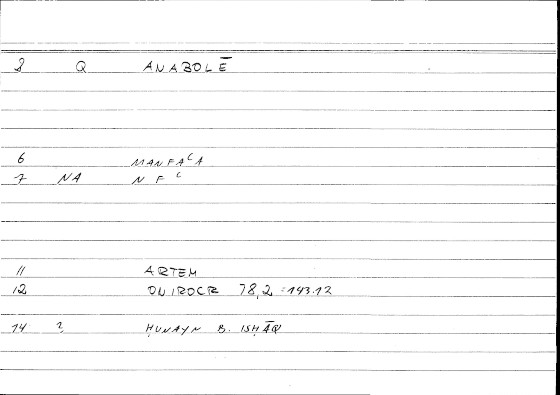 3 Q ANABOLĒ
6 MANFAᶜA
7 NA N F ᶜ
11 ARTEM
12 ONIROCR 78,2 = 143.12
14 ? ḤUNAYN B. ISḤĀQ